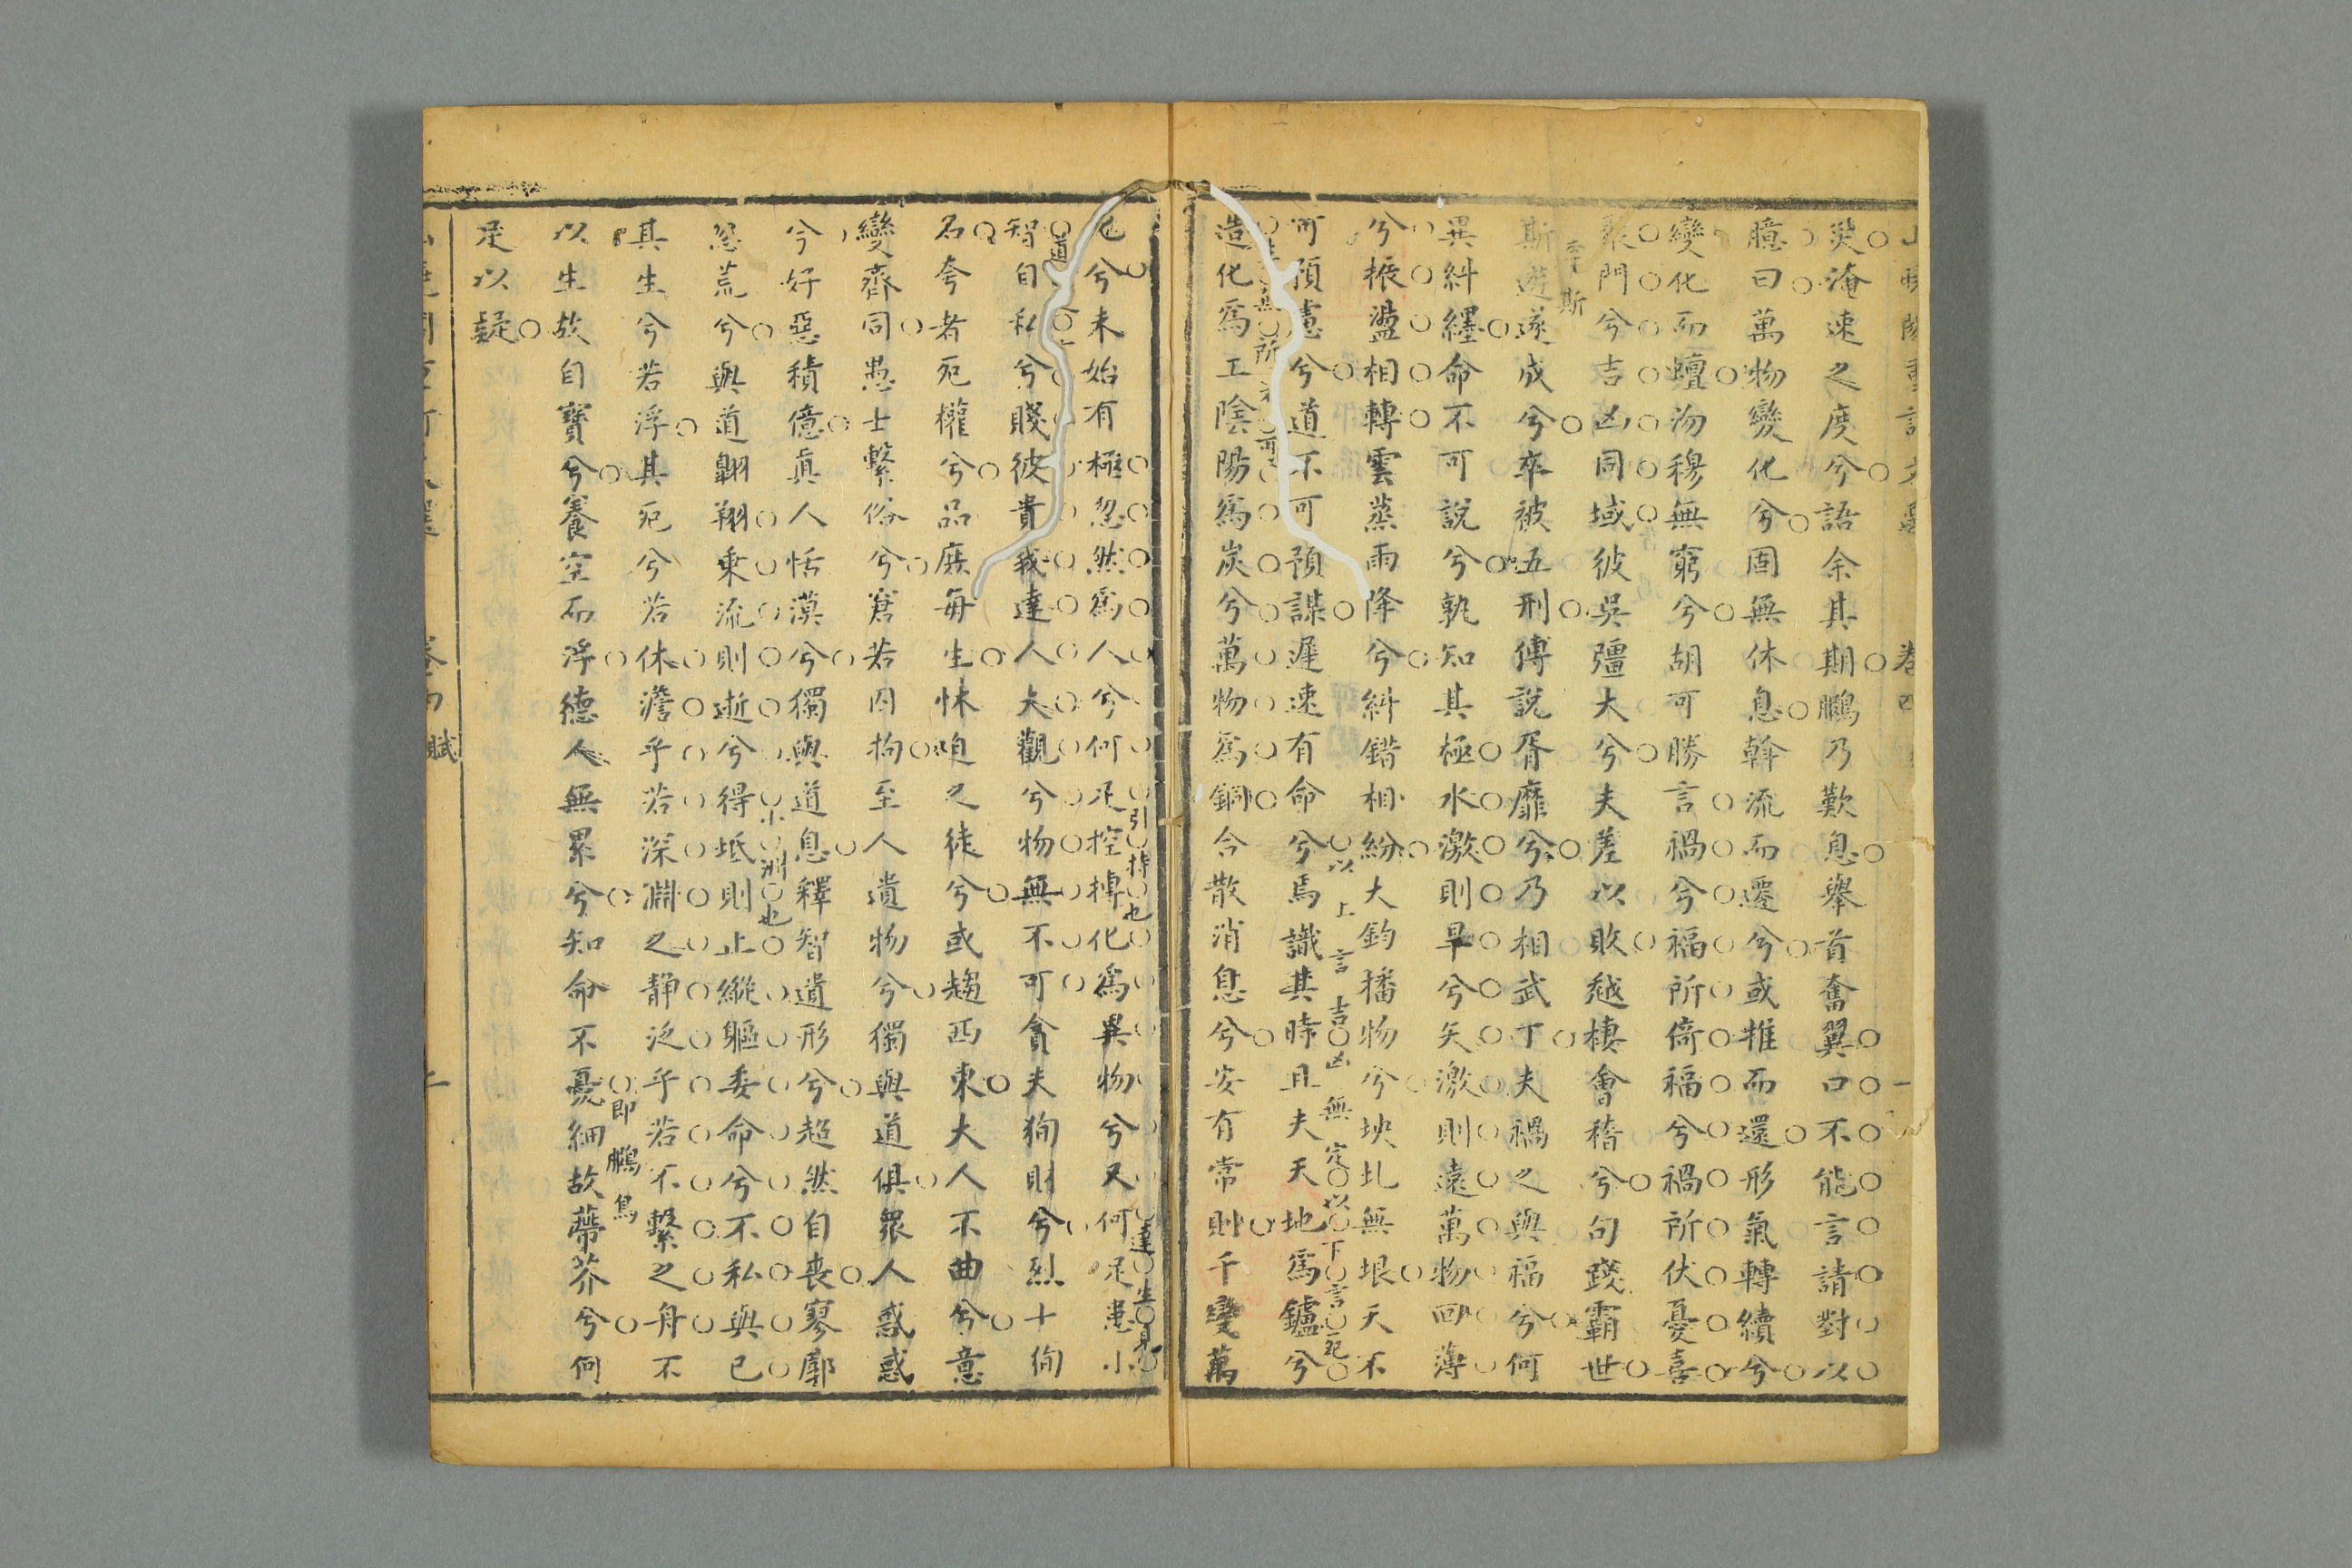 災淹速之度兮語余其期鵩乃歎息舉首奮翼口不能言請對以
臆曰萬物變化兮固無休息斡流而遷兮或推而還形氣轉續兮
變化而蟺沕穆無窮兮胡可勝言禍兮福所倚福兮禍所伏憂喜
聚門兮吉凶同域彼吳彊大兮夫差以敗越棲會稽兮句踐霸世
李斯
斯遊遂成兮卒被五刑傅說胥靡兮乃相武丁夫禍之與福兮何
異糾纆命不可說兮孰知其極水激則旱兮矢激則遠萬物回薄
兮振盪相轉雲蒸雨降兮糾錯相紛大鈞播物兮坱圠無垠天不
以上言吉凶無定以下言死
可預慮兮道不可預謀遲速有命兮焉識其時且夫天地為鑪兮
造化為工陰陽為炭兮萬物為銅合散消息兮安有常則千變萬
引持也 達生見
化兮未始有極忽然為人兮何足控摶化為異物兮又何足患小
道
智自私兮賤彼貴我達人大觀兮物無不可貪夫狥財兮烈士狥
名夸者死權兮品庶每生怵迫之徒兮或趨西東大人不曲兮意
變齊同愚士繫俗兮窘若囚拘至人遺物兮獨與道俱眾人惑惑
兮好惡積億真人恬漠兮獨與道息釋智遺形兮超然自喪寥廓
小洲也
忽荒兮與道翱翔乘流則逝兮得坻則止縱軀委命兮不私與已
其生兮若浮其死兮若休澹乎若深淵之靜泛乎若不繫之舟不
即鵩鳥
以生故自寶兮養空而浮德人無累兮知命不憂細故蔕芥兮何
足以疑
卷四 賦